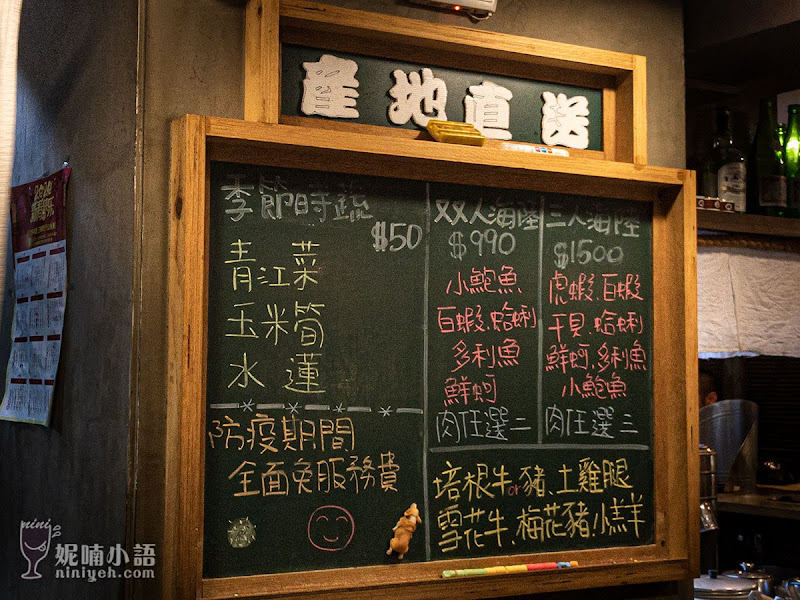 產地直送
季節時蔬
$50
青江菜
玉米筍
水蓮
防疫期間
全面免服務費
双人海陸
$990
小鮑魚
白蝦、蛤蜊
多利魚
鮮蚵
肉任選二
三人海陸
$1500
虎蝦、白蝦
干貝、蛤蜊
鮮蚵、多利魚
小鮑魚
肉任選三
培根牛or豬、土雞腿
雪花牛、梅花豬、小羔羊
nini
妮喃小語
niniyeh.com